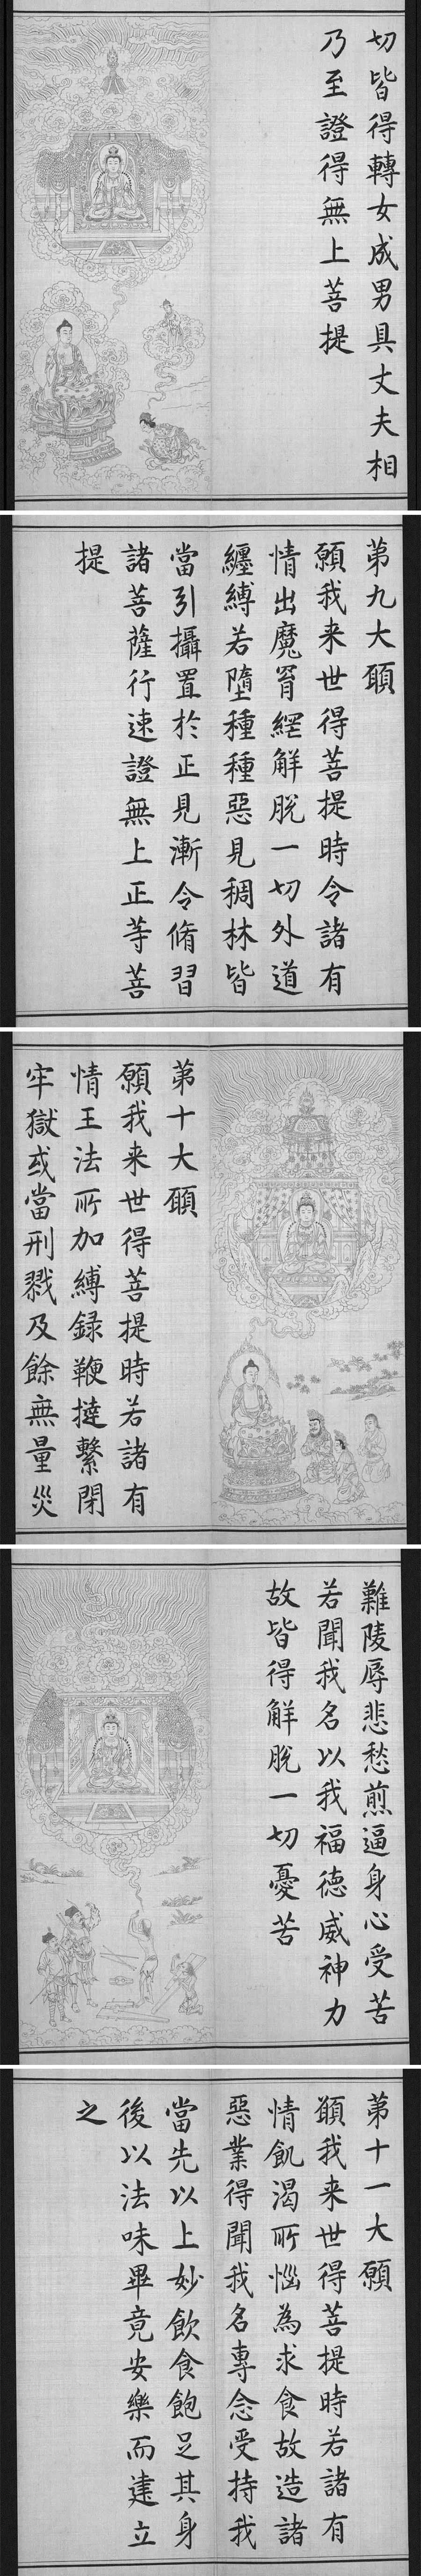 切皆得轉女成男具丈夫相
乃至證得無上菩提
第九大願
願我来世得菩提時令諸有
情出魔罥網解脫一切外道
纏縛若墮種種惡見稠林皆
當引攝置於正見漸令脩習
諸菩薩行速證無上正等菩
提
第十大願
願我来世得菩提時若諸有
情王法所加縛録鞭撻繫閉
牢獄或當刑戮及餘無量災
難陵辱悲愁煎逼身心受苦
若聞我名以我福德威神力
故皆得解脫一切憂苦
第十一大願
願我来世得菩提時若諸有
情飢渴所惱為求食故造諸
惡業得聞我名專念受持我
當先以上妙飲食飽足其身
後以法味畢竟安樂而建立
之